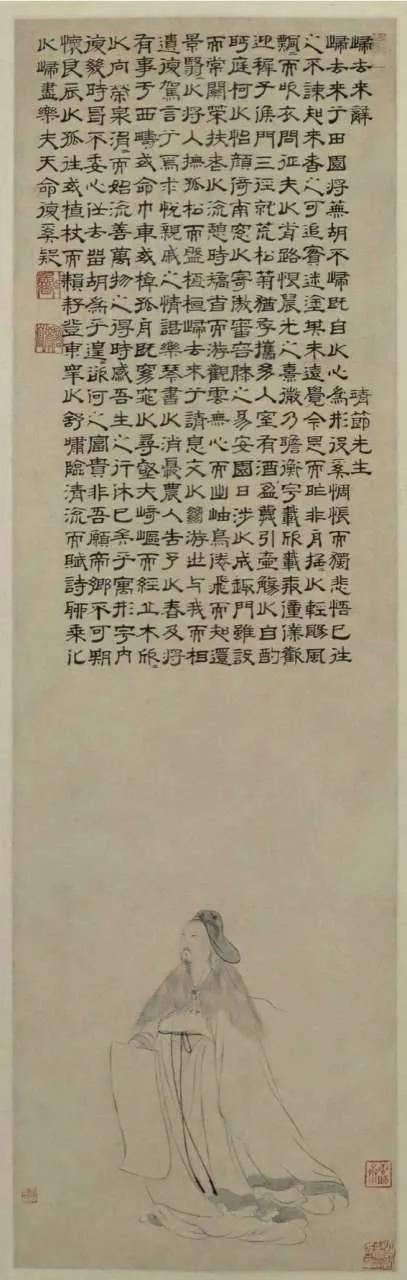 歸去來辭 靖節先生
歸去來兮田園將蕪胡不歸既自以心為形役奚惆悵而獨悲悟已往
之不諫知來者之可追實迷塗其未遠覺今是而昨非舟搖以輕颺風
飄而吹衣問征夫以前路恨晨光之熹微乃瞻衡宇載欣載奔僮僕歡
迎稚子候門三徑就荒松菊猶存攜幼入室有酒盈樽引壺觴以自酌
眄庭柯以怡顏倚南窗以寄傲審容膝之易安園日涉以成趣門雖設
而常關策扶老以流憩時矯首而游觀雲無心而出岫鳥倦飛而知還
景翳以將入撫孤松而盤桓歸去來兮請息交以絕游世與我而相
遺復駕言兮焉求悅親戚之情話樂琴書以消憂農人告予以春及將
有事乎西疇或命巾車或棹孤舟既窈窕以尋壑亦崎嶇而經丘木欣
以向榮泉涓而始流善萬物之得時感吾生之行休已矣乎寓形宇內
復幾時曷不委心任去留胡為乎遑欲何之富貴非吾願帝鄉不可期
懷良辰以孤往或植杖而耘耔登東皋以舒嘯臨清流而賦詩聊乘化
以歸盡樂夫天命復奚疑